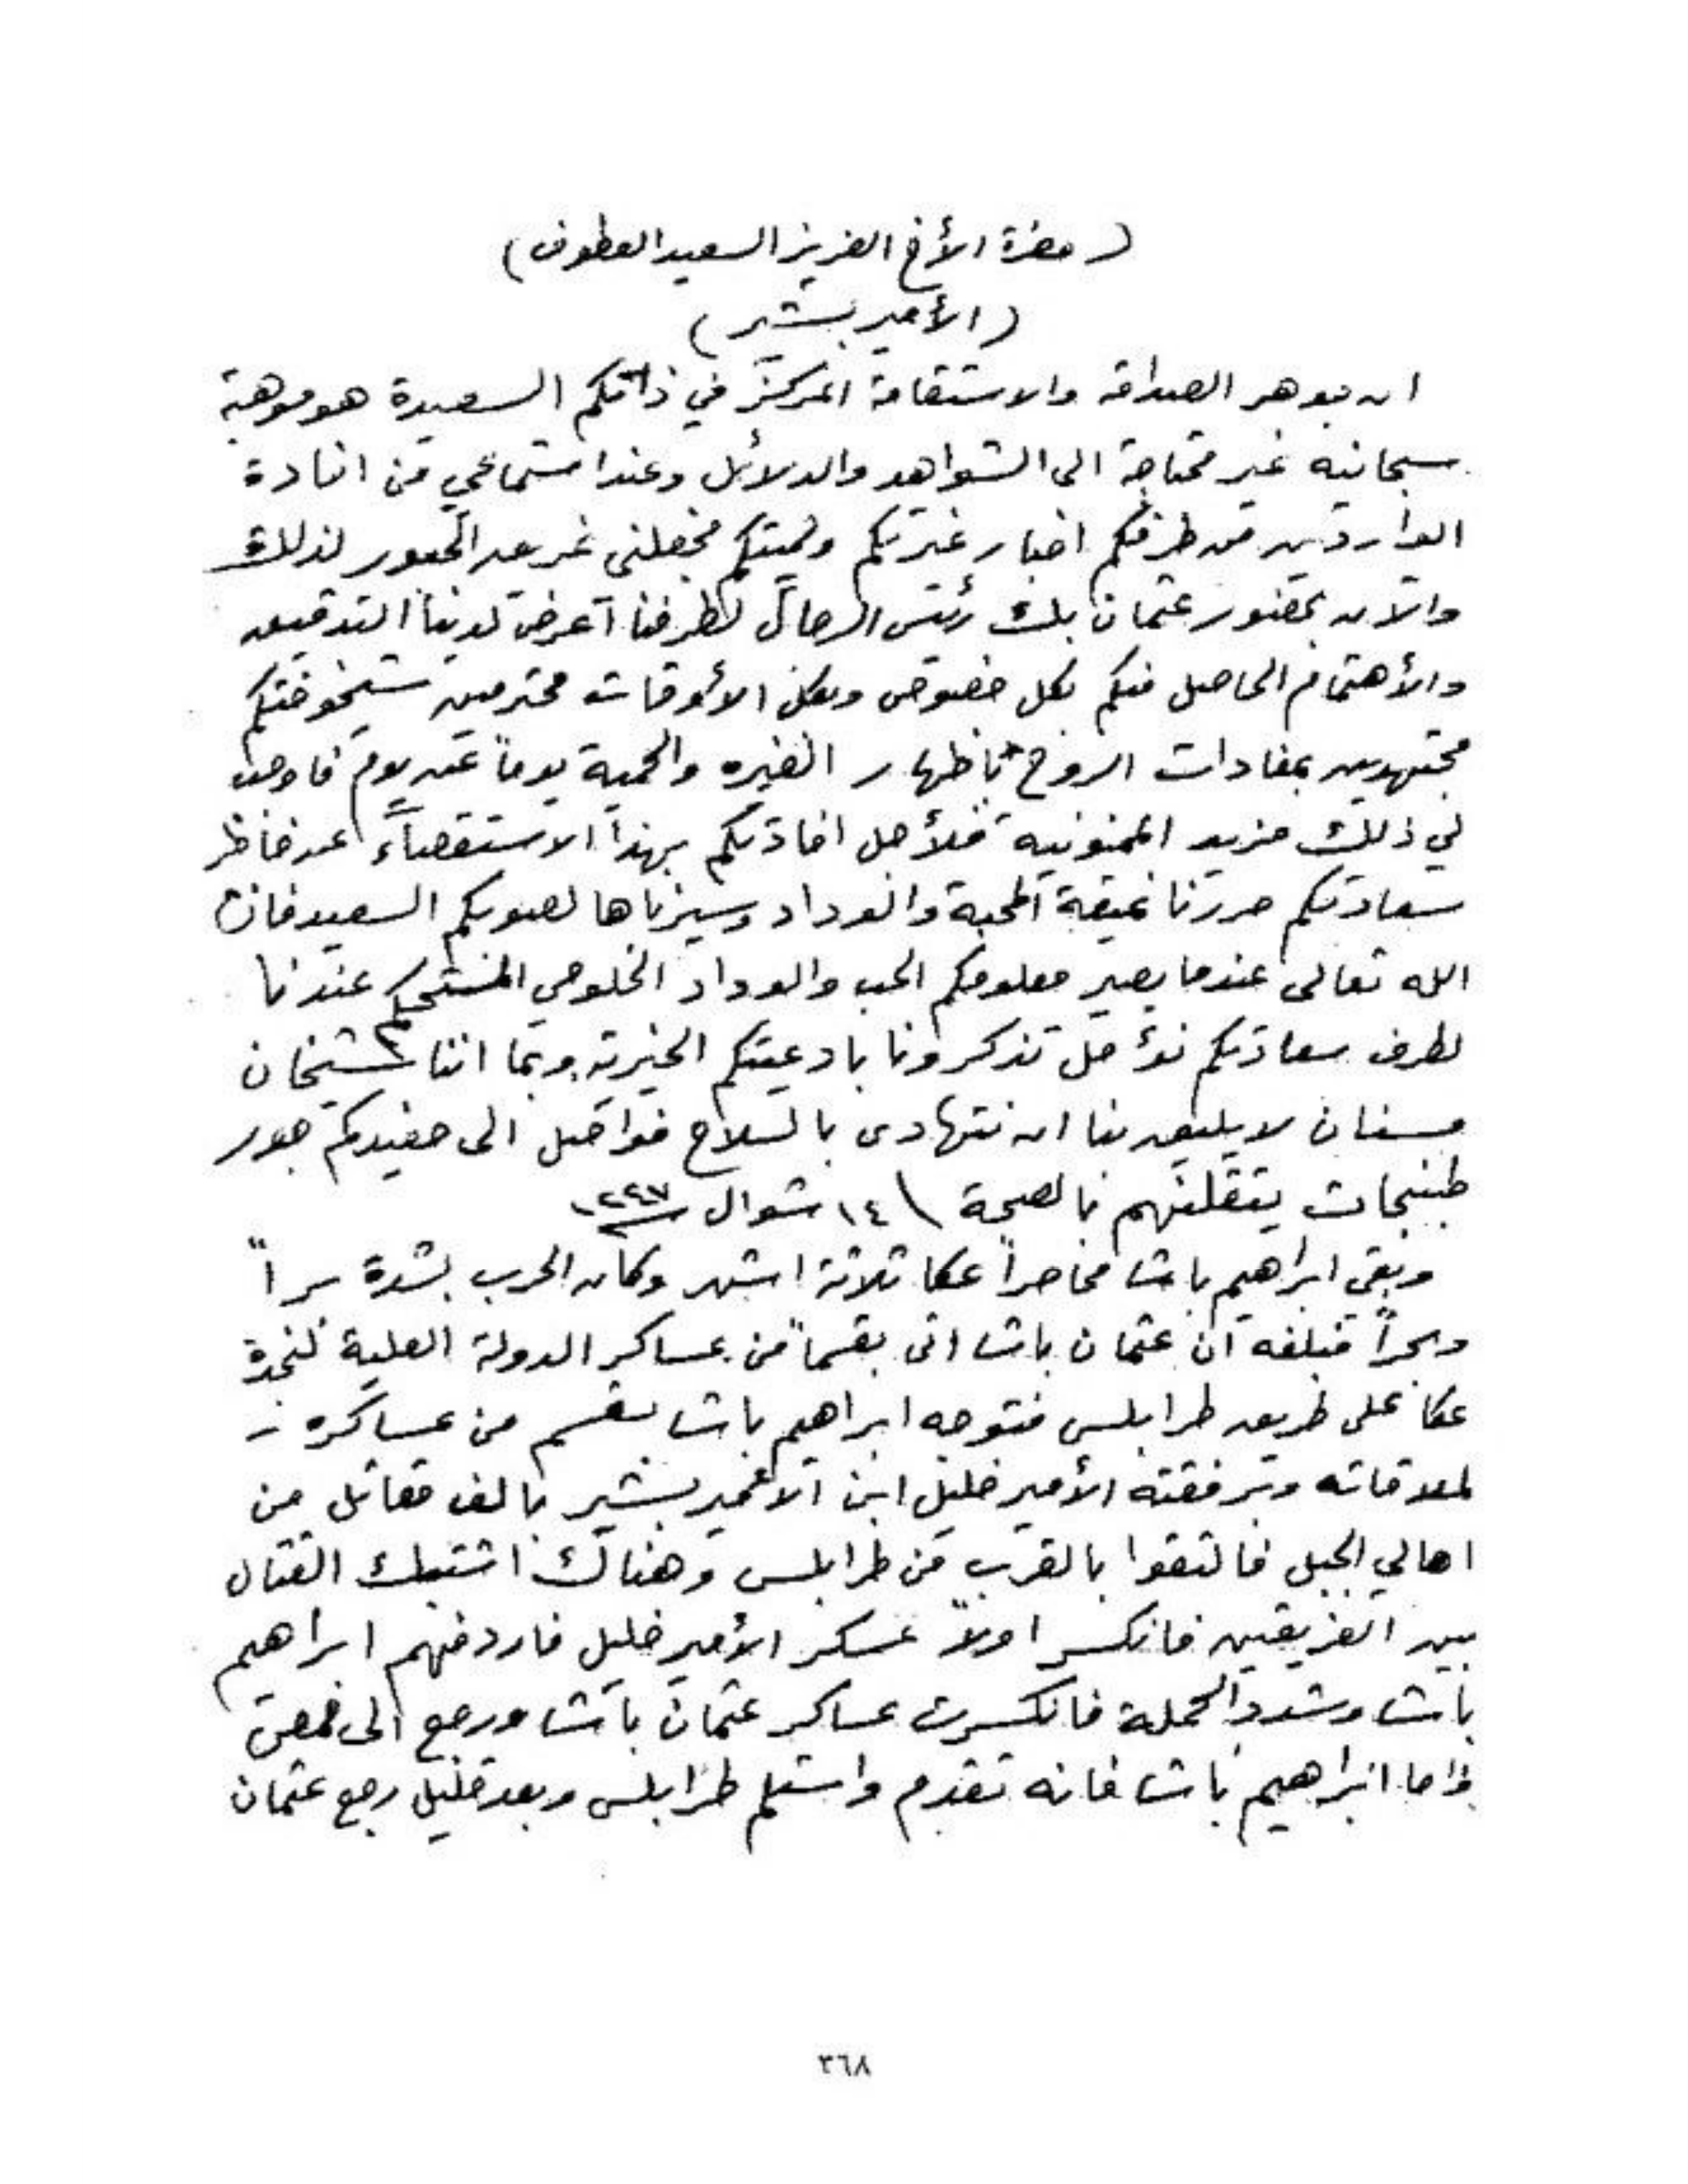 (حضرة الأخ العزيز السعيد العطوف)
(الأمير بشير)
ان جوهر الصداقه والاستقامة المركز في ذاتكم السعيدة هو موهبة
سبحانيه غير محتاجة الى الشواهد والدلائل وعند استماعي من افادة
الواردين من طرفكم اخبار غيرتكم وحميتكم تجعلني غريق الحبور لذلك
والآن بحضور عثمان بك رئيس الرجال لطرفنا اعرض لدينا التدقيق
والأهتمام الحاصل منكم بكل خصوص وبكل الأوقات محترمين شيخوختكم
مجتهدين بمفادات الروح باظهار الغيره والحمية يوماً عن يوم فاوجب
لي ذلك مزيد الممنونيه فلأجل افادتكم بهذا الاستقصاء عن خاطر
سعادتكم حررنا نميقة المحبة والوداد وسيرناها لصوبكم السعيد فان
الله تعالى عندما يصير معلومكم الحب والوداد الخلوصي المستحكم عندنا
لطرف سعادتكم نؤمل تذكرونا بادعيتكم الخيرية وبما اننا شيخان
مسنان لا يليق بنا ان نتهادى بالسلاح فواصل الى حفيدكم جوز
طبنجات يتقلنهم بالصحة \ ١٤ شوال سنة ١٢٤٧
وبقي ابراهيم باشا محاصراً عكا ثلاثة اشهر وكان الحرب بشدة براً
وبحراً فبلغه ان عثمان باشا اتى بقسماً من عساكر الدولة العلية لنجدة
عكا على طريق طرابلس فتوجه ابراهيم باشا بقسم من عساكره
لملاقاته وبرفقته الأمير خليل ابن الأمير بشير بالف مقاتل من
اهالي الجبل فالتقوا بالقرب من طرابلس وهناك اشتبك القتال
بين الفريقين فانكسر اولاً عسكر الأمير خليل فاردفهم ابراهيم
باشا وشدد الحملة فانكسرت عساكر عثمان باشا ورجع الى حمص
واما ابراهيم باشا فانه تقدم واستلم طرابلس وبعد قليل رجع عثمان
٣٦٨